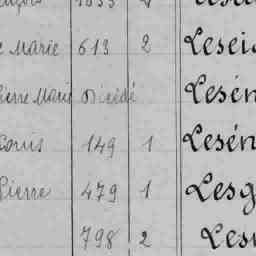 Marie 613 2 Lesei
Pierre Marie Décédé Lesén
Louis 149 1 Lesén
Pierre 479 1 Lesg
798 2 Les